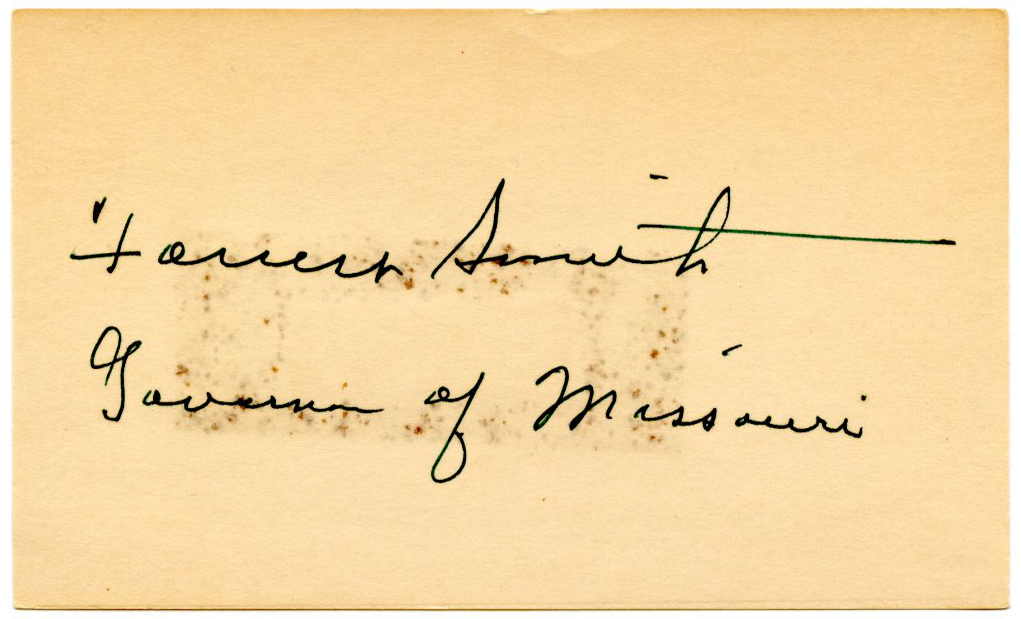 Forrest Smith
Governor of Missouri